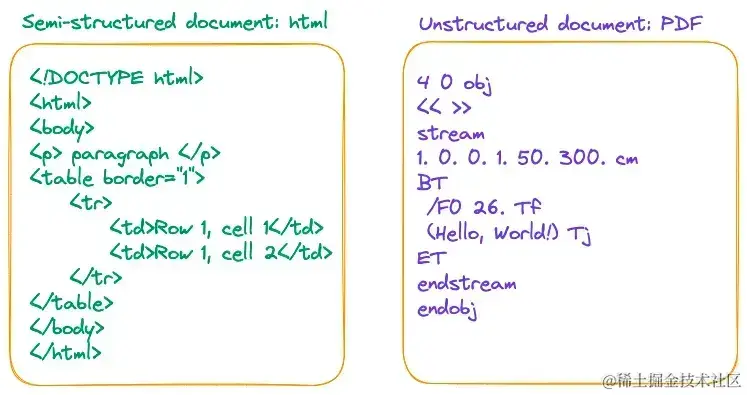 Semi-structured document: html
<!DOCTYPE html>
<html>
<body>
<p> paragraph </p>
<table border="1">
<tr>
<td>Row 1, cell 1</td>
<td>Row 1, cell 2</td>
</tr>
</table>
</body>
</html>
Unstructured document: PDF
4 0 obj
<< >>
stream
1. 0. 0. 1. 50. 300. cm
BT
/F0 26. Tf
(Hello, World!) Tj
ET
endstream
endobj
@稀土掘金技术社区